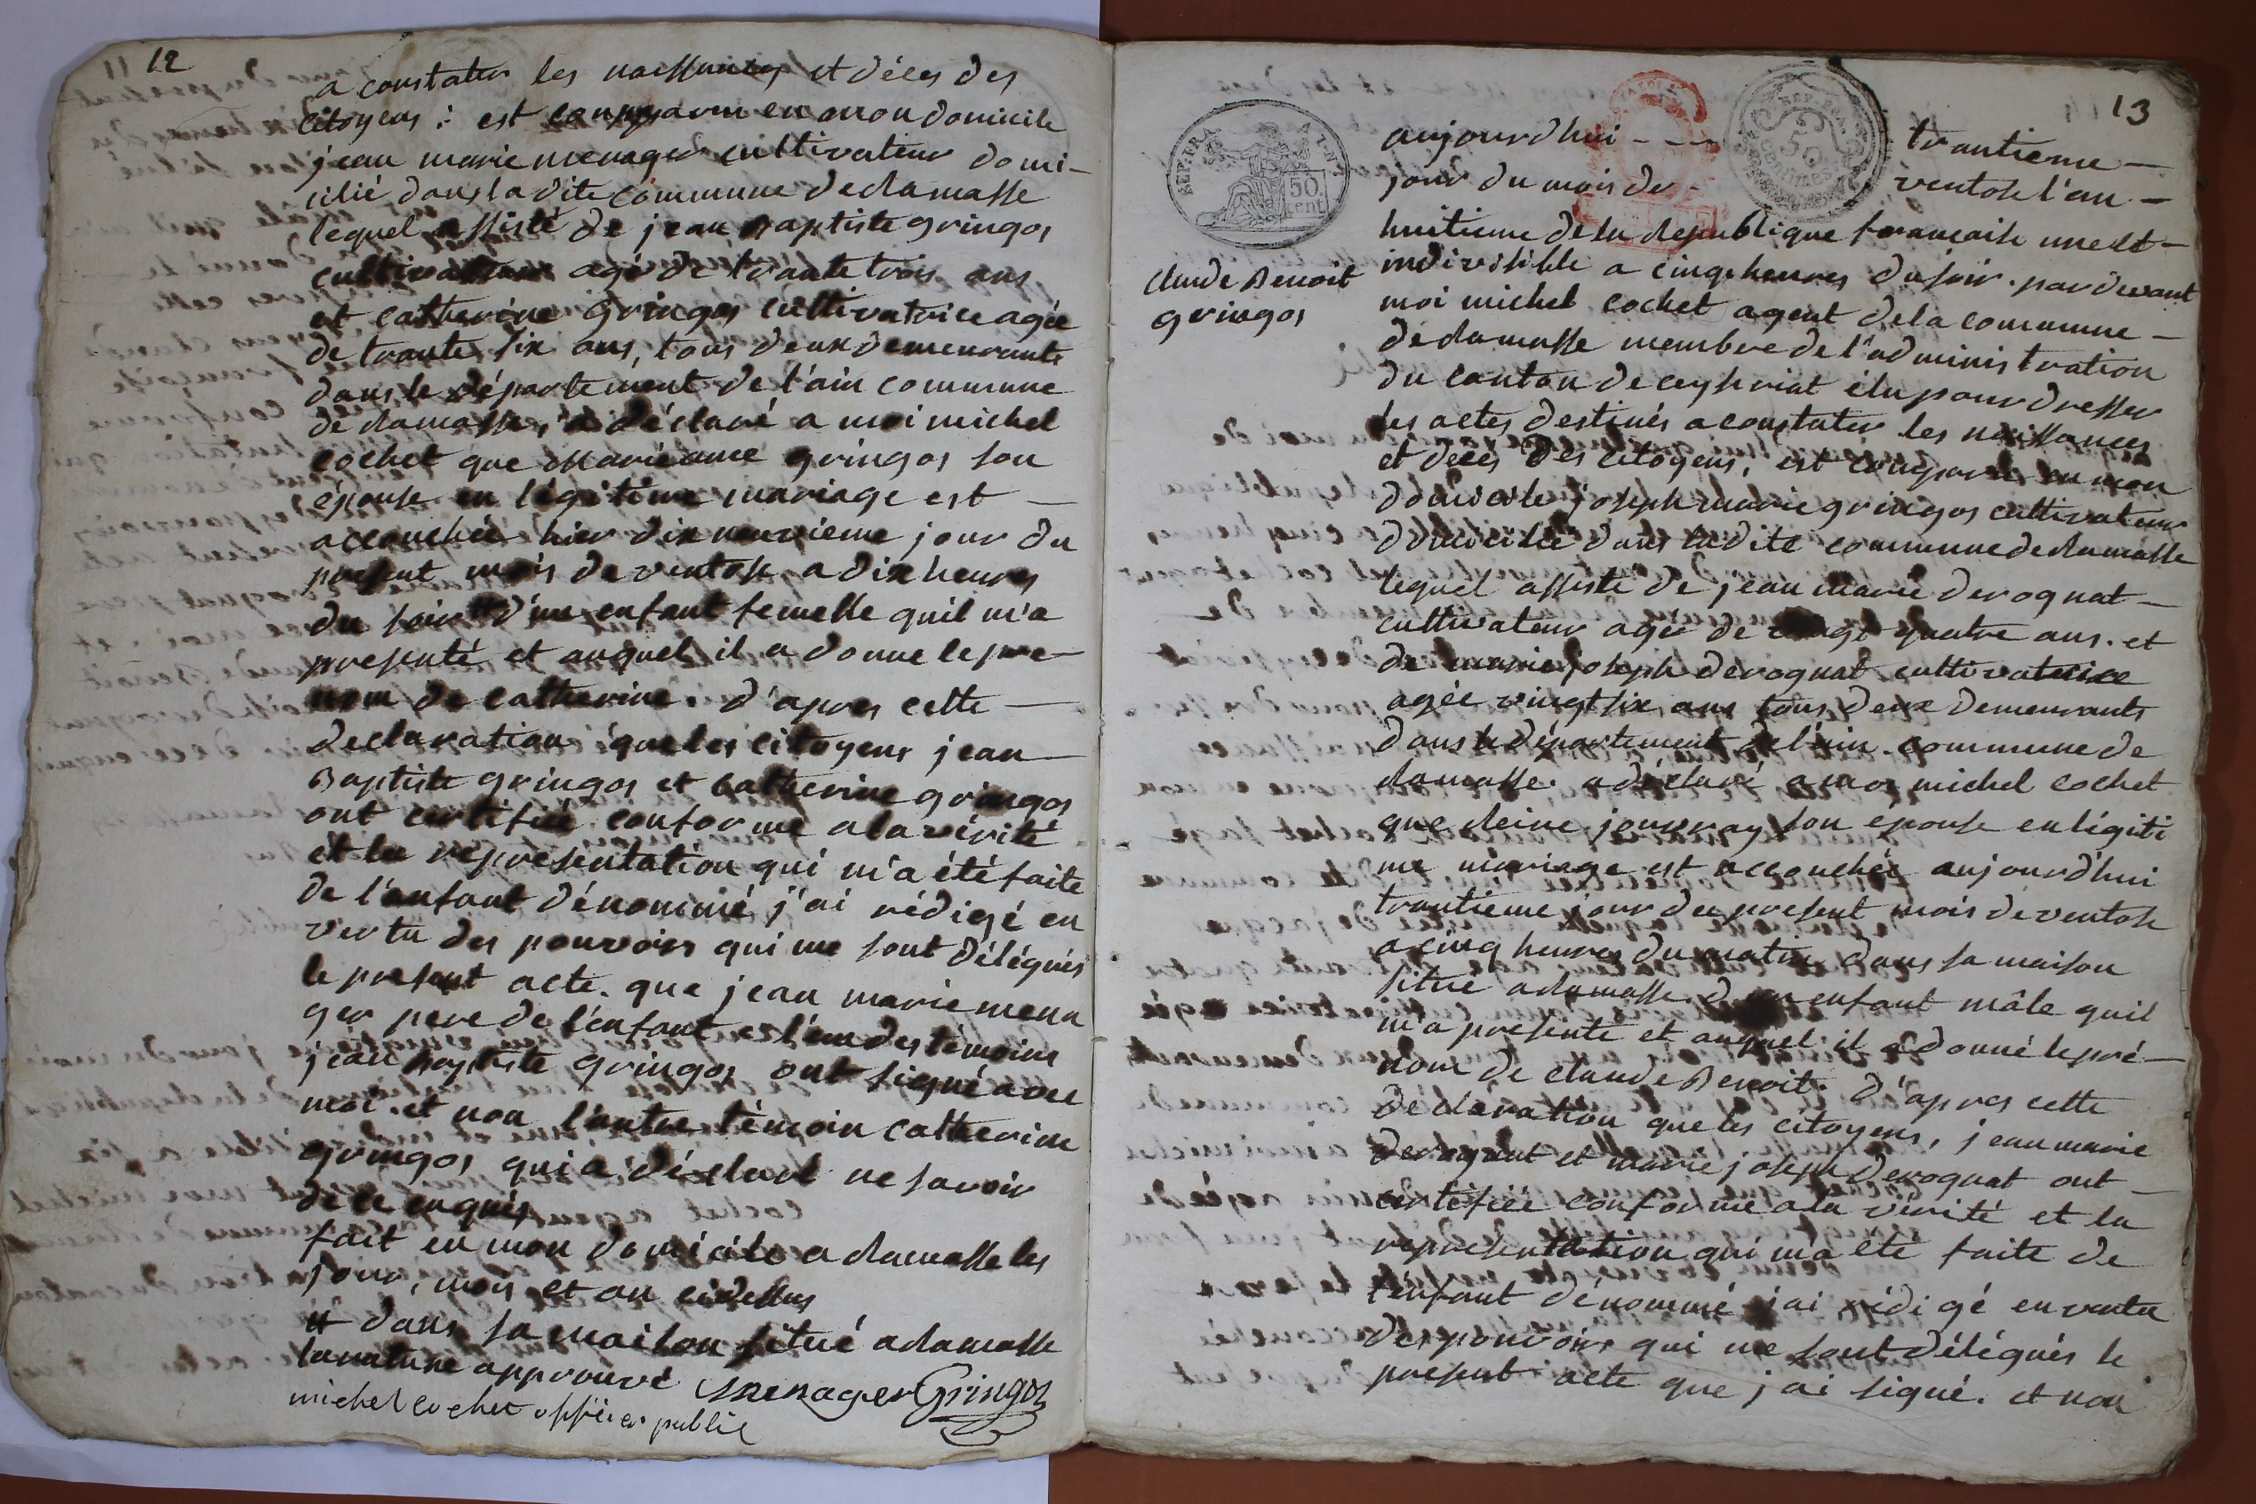 12
a constater les naissances et décés des
citoyens : est comparu en mon domicile
jean marie menager cultivateur domi-
cilié dans la dite commune de ramasse
lequel assisté de jean Baptiste gringos
cultivateur agé de trante trois ans
et catherine gringos cultivatrice agée
de trante six ans, tous deux demeurants
dans le département de l'ain commune
de ramasse, a déclaré a moi michel
cochet que Marieanne gringos son
épouse en légitime mariage est —
accouchée hier dix neuvieme jour du
present mois de ventose a dix heures
du soir # d'un enfant femelle quil m'a
presenté et auquel il a donne le pre-
nom de catherine. d'apres cette —
declaration que les citoyens jean —
Baptiste gringos et catherine gringos
ont certifiée conforme a la vérité
et la representation qui m'a été faite
de l'enfant dénommé j'ai rédigé en
vertu des pouvoirs qui me sont délégués
le present acte. que jean marie mena
ger pere de l'enfant et l'un des témoins
jean baptiste gringos ont signé avec
moi. et non l'autre témoin catherine
gringos qui a déclaré ne savoir
de ce enquis
fait en mon domicile a ramasse les
jour, mois et an cidessus
# dans sa maison situé a ramasse
approuvé menager Gringos
michel cochet officier public
13
REP. FRA
50
cent
50
centimes
Claude Benoit
gringos
aujourdhui - - - trantieme —
jour du mois de - ventose l'an —
huitieme de la Republique francaise une et —
indivisible a cinq heures du soir. par devant
moi michel cochet agent de la commune —
de ramasse membre de l'administration
du canton de ceyseriat élu pour dresser
les actes destinés a constater les naissances
et deces des citoyens, est comparu en mon
domicile joseph marie gringos cultivateur
domicilié dans ladite commune de ramasse
lequel assisté de jean marie deroquat —
cultivateur agé de quatre ans. et
de marie joseph deroquat cultivatrice
agée vingt six ans tous deux demeurants
dans le département de l'ain. commune de
ramasse. a déclaré a moi michel cochet
que reine jouvray son epouse en légiti
me mariage est accouchée aujourd'hui
trantieme jour du present mois de ventose
a cinq heures du matin dans sa maison
situé a ramasse. d'un enfant mâle quil
m'a presente et auquel il a donné le pré —
nom de claude Benoit. d'apres cette
declaration que les citoyens, jean marie
deroquat et marie joseph deroquat ont —
certifiée conforme a la vérité et la
representation qui m'a été faite de
l'enfant dénommé j'ai rédigé en vertu
des pouvoirs qui me sont délégués le
present acte que j'ai signé. et non